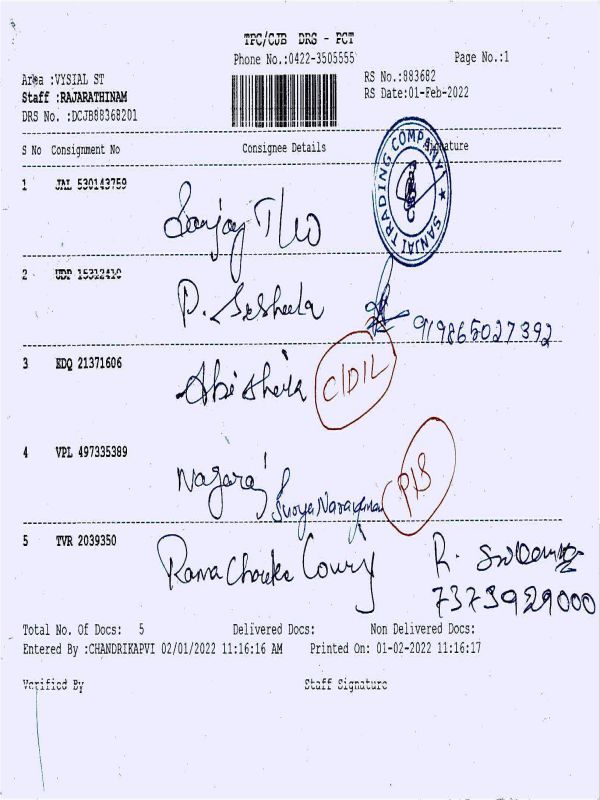 TPC/CJB DRS - PCT
Phone No.:0422-3505555 Page No.:1
Area :VYSIAL ST RS No.:883682
Staff :RAJARATHINAM RS Date:01-Feb-2022
DRS No. :DCJB88368201
S No Consignment No Consignee Details Signature
1 JAL 530143759
SANJAI TRADING COMPANY ★
Sanjay
2 UDP 15312410
P.
919865027392
3 KDQ 21371606
C/D/L
4 VPL 497335389
Nagaraj
Surya Narayanan
5 TVR 2039350
R.
7373929000
Total No. Of Docs: 5 Delivered Docs: Non Delivered Docs:
Entered By :CHANDRIKAPVI 02/01/2022 11:16:16 AM Printed On: 01-02-2022 11:16:17
Verified By Staff Signature